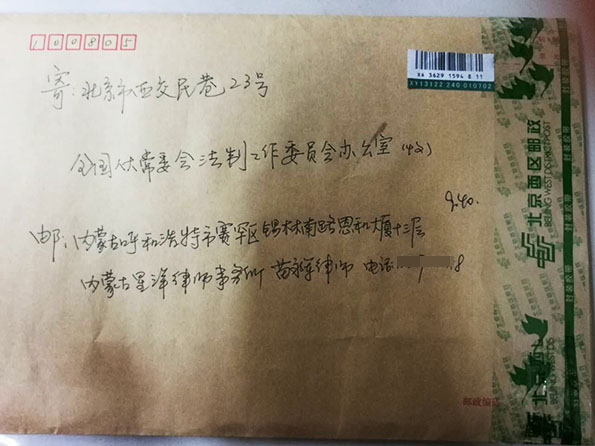 100805
XA 3629 1594 8 11
XY13122 240 010702
寄：北京市西交民巷23号
全国人大常委会法制工作委员会办公室（收）
9.40.
邮：内蒙古呼和浩特市赛罕区锡林南路恩和大厦十三层
内蒙古星洋律师事务所 苗永军律师 电话
8
北京西区邮政
BEIJING WEST DIS POST
封装胶带
封装胶带
北京西
BEIJING WEST DIS
邮政编